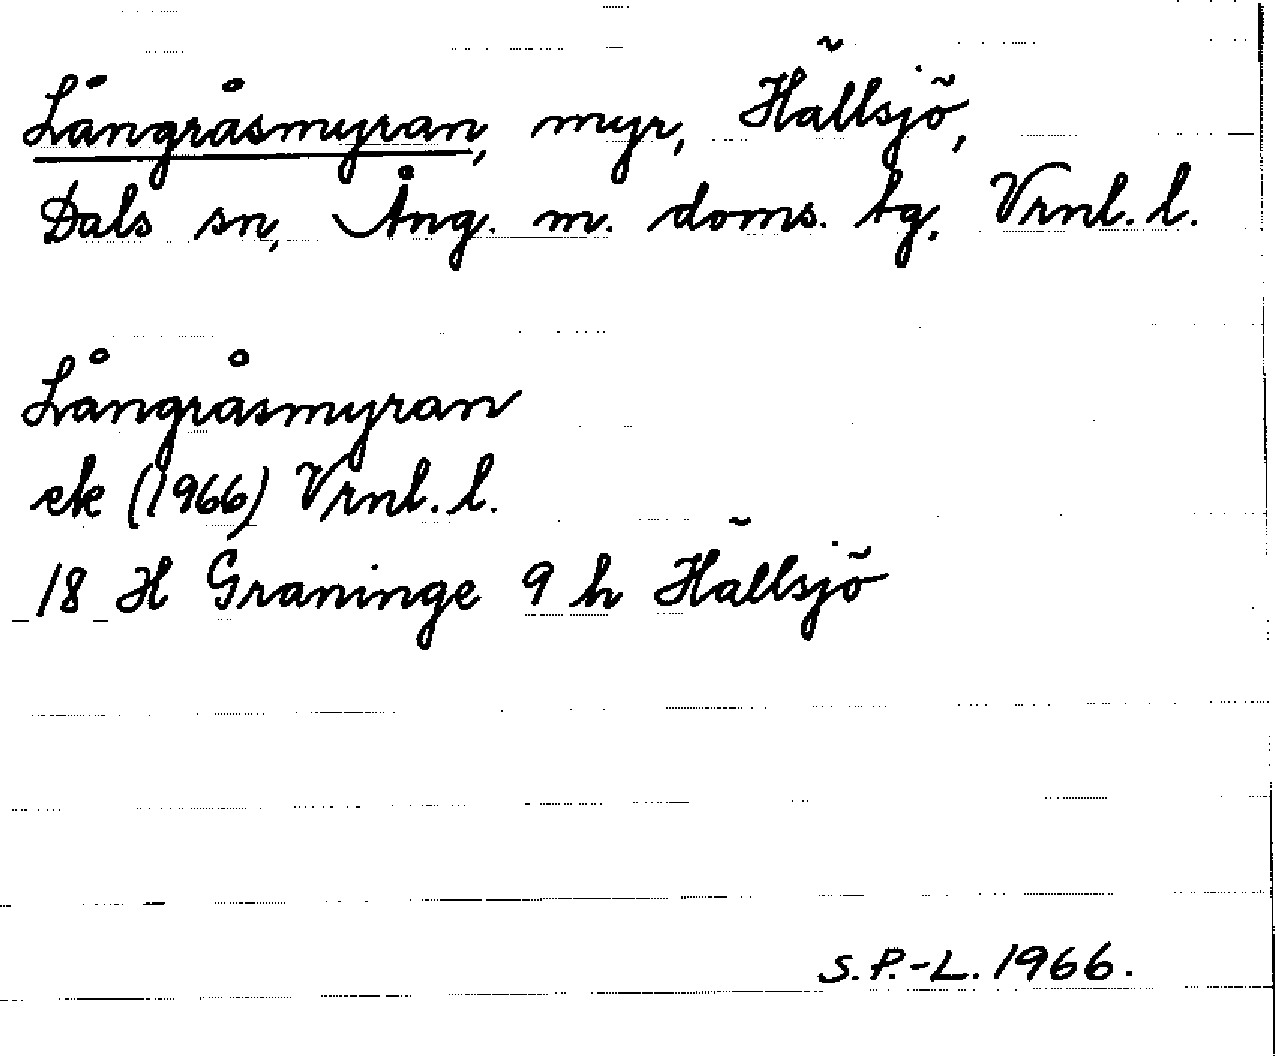 Långråsmyran, myr, Hällsjö,
Dals sn, Ång. m. doms. tg. Vrnl. l.
Långråsmyran
ek (1966) Vrnl. l.
18 H Graninge 9 h Hällsjö
S.P.-L. 1966.